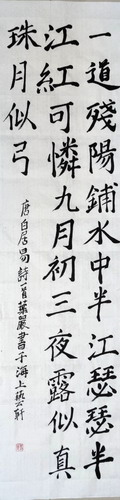 一道殘陽鋪水中半江瑟瑟半
江紅可憐九月初三夜露似真
珠月似弓
唐白居易詩一首葉嚴書于海上藝軒